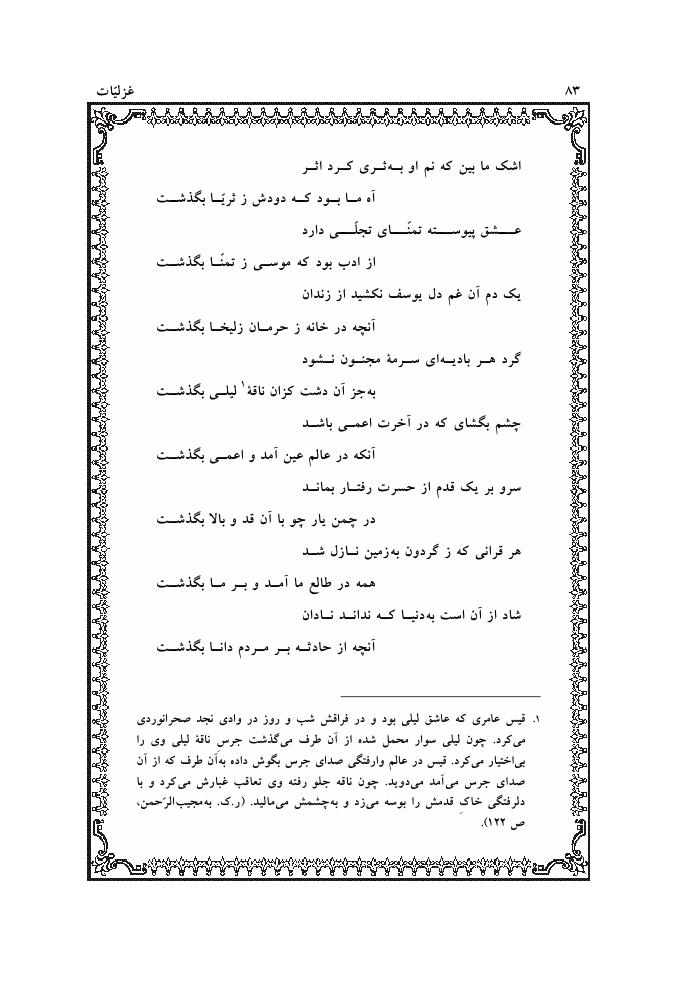 ۸۳ غزلیّات
اشک ما بین که نم او به‌ثری کرد اثر
آه ما بود که دودش ز ثریّا بگذشت
عشق پیوسته تمنّای تجلّی دارد
از ادب بود که موسی ز تمنّا بگذشت
یک دم آن غم دل یوسف نکشید از زندان
آنچه در خانه ز حرمان زلیخا بگذشت
گرد هر بادیه‌ای سرمهٔ مجنون نشود
به‌جز آن دشت کزان ناقهٔ۱ لیلی بگذشت
چشم بگشای که در آخرت اعمی باشد
آنکه در عالم عین آمد و اعمی بگذشت
سرو بر یک قدم از حسرت رفتار بماند
در چمن یار چو با آن قد و بالا بگذشت
هر قرانی که ز گردون به‌زمین نازل شد
همه در طالع ما آمد و بر ما بگذشت
شاد از آن است به‌دنیا که نداند نادان
آنچه از حادثه بر مردم دانا بگذشت
۱. قیس عامری که عاشق لیلی بود و در فراقش شب و روز در وادی نجد صحرانوردی
می‌کرد. چون لیلی سوار محمل شده از آن طرف می‌گذشت جرس ناقهٔ لیلی وی را
بی‌اختیار می‌کرد. قیس در عالم وارفتگی صدای جرس بگوش داده به‌آن طرف که از آن
صدای جرس می‌آمد می‌دوید. چون ناقه جلو رفته وی تعاقب غبارش می‌کرد و با
دلرفتگی خاکِ قدمش را بوسه می‌زد و به‌چشمش می‌مالید. (ر.ک. به‌مجیب‌الرّحمن،
ص ۱۲۲).